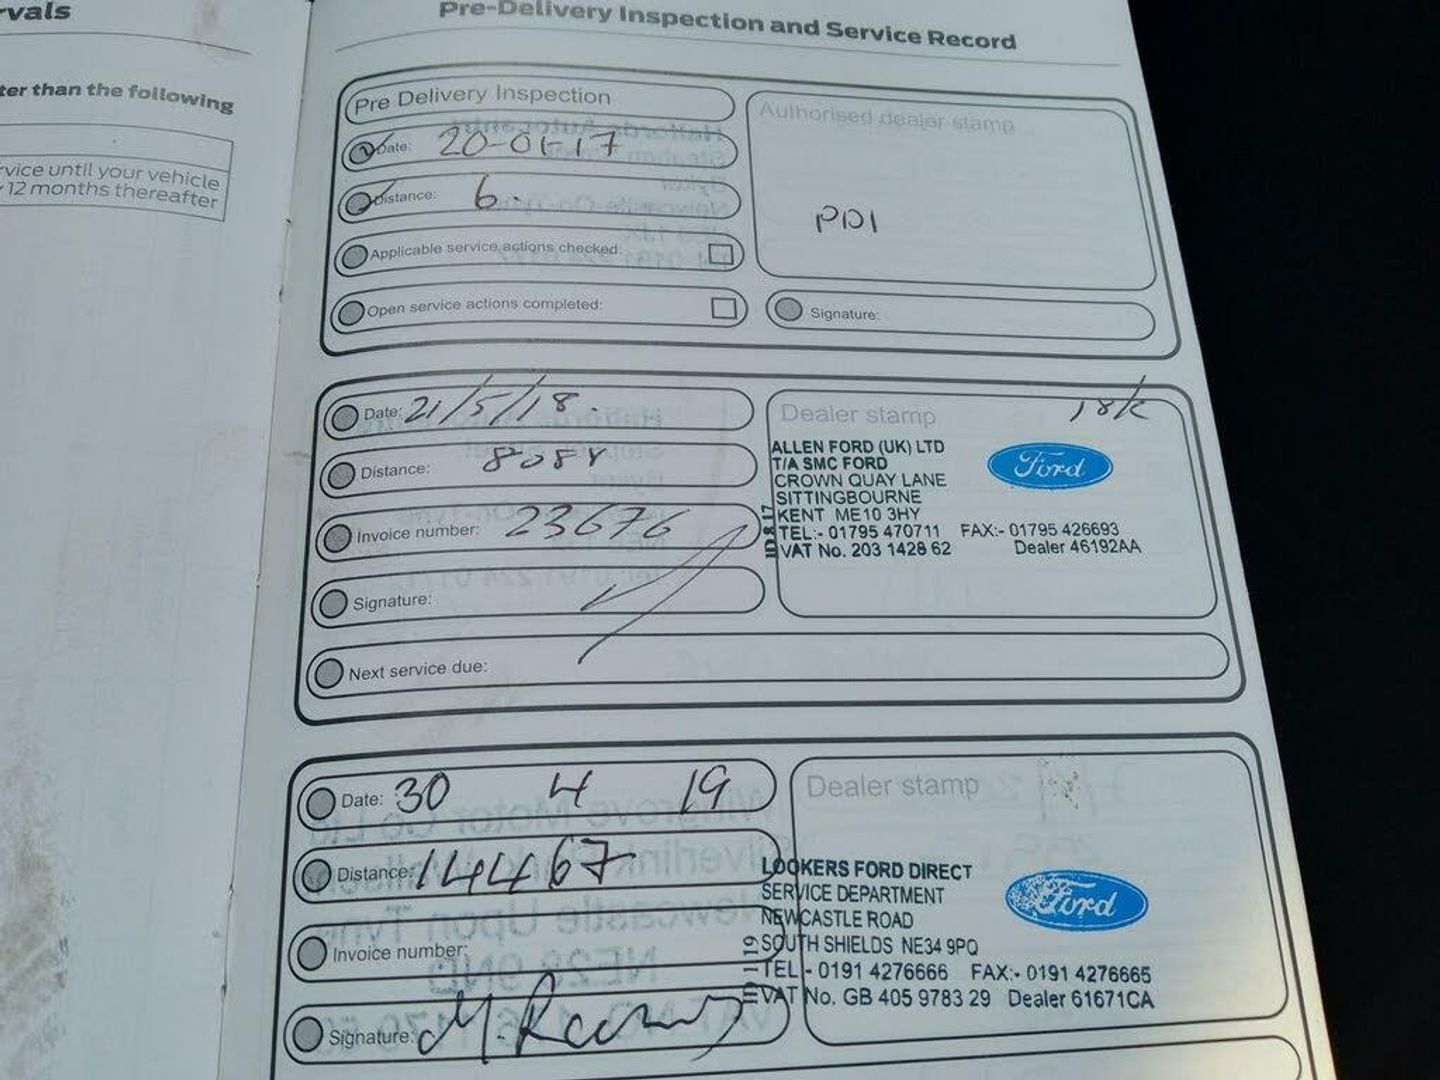 rvals
ter than the following
rvice until your vehicle
12 months thereafter
Pre-Delivery Inspection and Service Record
Pre Delivery Inspection
Authorised dealer stamp
Date: 20-01-17
Distance: 6.
PDI
Applicable service actions checked:
Open service actions completed:
Signature:
Date: 21/5/18.
Dealer stamp
18/2
Distance: 8084
Invoice number: 23676
Signature:
Next service due:
ALLEN FORD (UK) LTD
T/A SMC FORD
CROWN QUAY LANE
SITTINGBOURNE
KENT ME10 3HY
TEL:- 01795 470711 FAX:- 01795 426693
VAT No. 203 1428 62 Dealer 46192AA
Ford
Date: 30 4 19
Dealer stamp
Distance: 14467
Invoice number:
Signature:
LOOKERS FORD DIRECT
SERVICE DEPARTMENT
NEWCASTLE ROAD
SOUTH SHIELDS NE34 9PQ
TEL - 0191 4276666 FAX:- 0191 4276665
VAT No. GB 405 9783 29 Dealer 61671CA
Ford